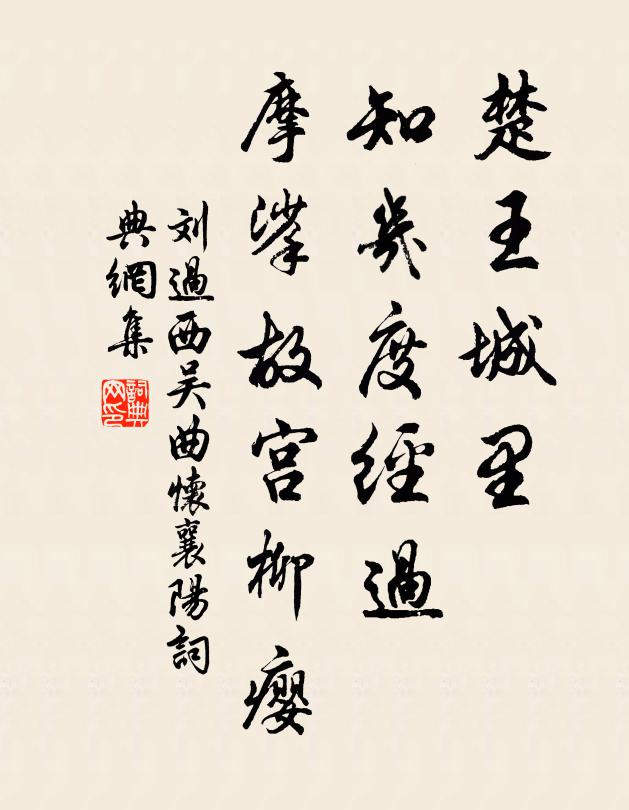 楚王城里
知幾度經過
摩挲故宫柳癭
刘過西吴曲懷襄陽詞
典網集
詞典网印